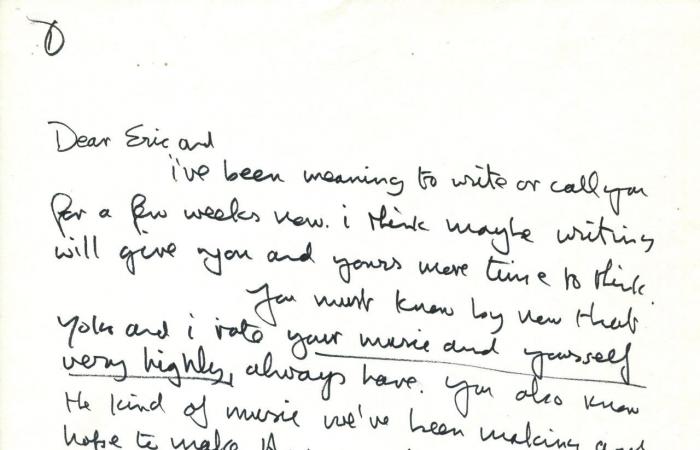 ①
Dear Eric and
i've been meaning to write or call you
for a few weeks now. i think maybe writing
will give you and yours more time to think.
You must know by now that
Yoko and i rate your music and yourself
very highly, always have. You also know
the kind of music we've been making and
hope to make